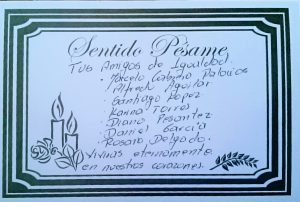 Sentido Pésame
Tus Amigos de Igualdad.
• Marcelo Cabrera Palacios
• Alfredo Aguilar
• Santiago López
• Karina Torres
• Diana Pesantez
• Daniel García
• Rosario Delgado.
Vivirás eternamente
en nuestros corazones.